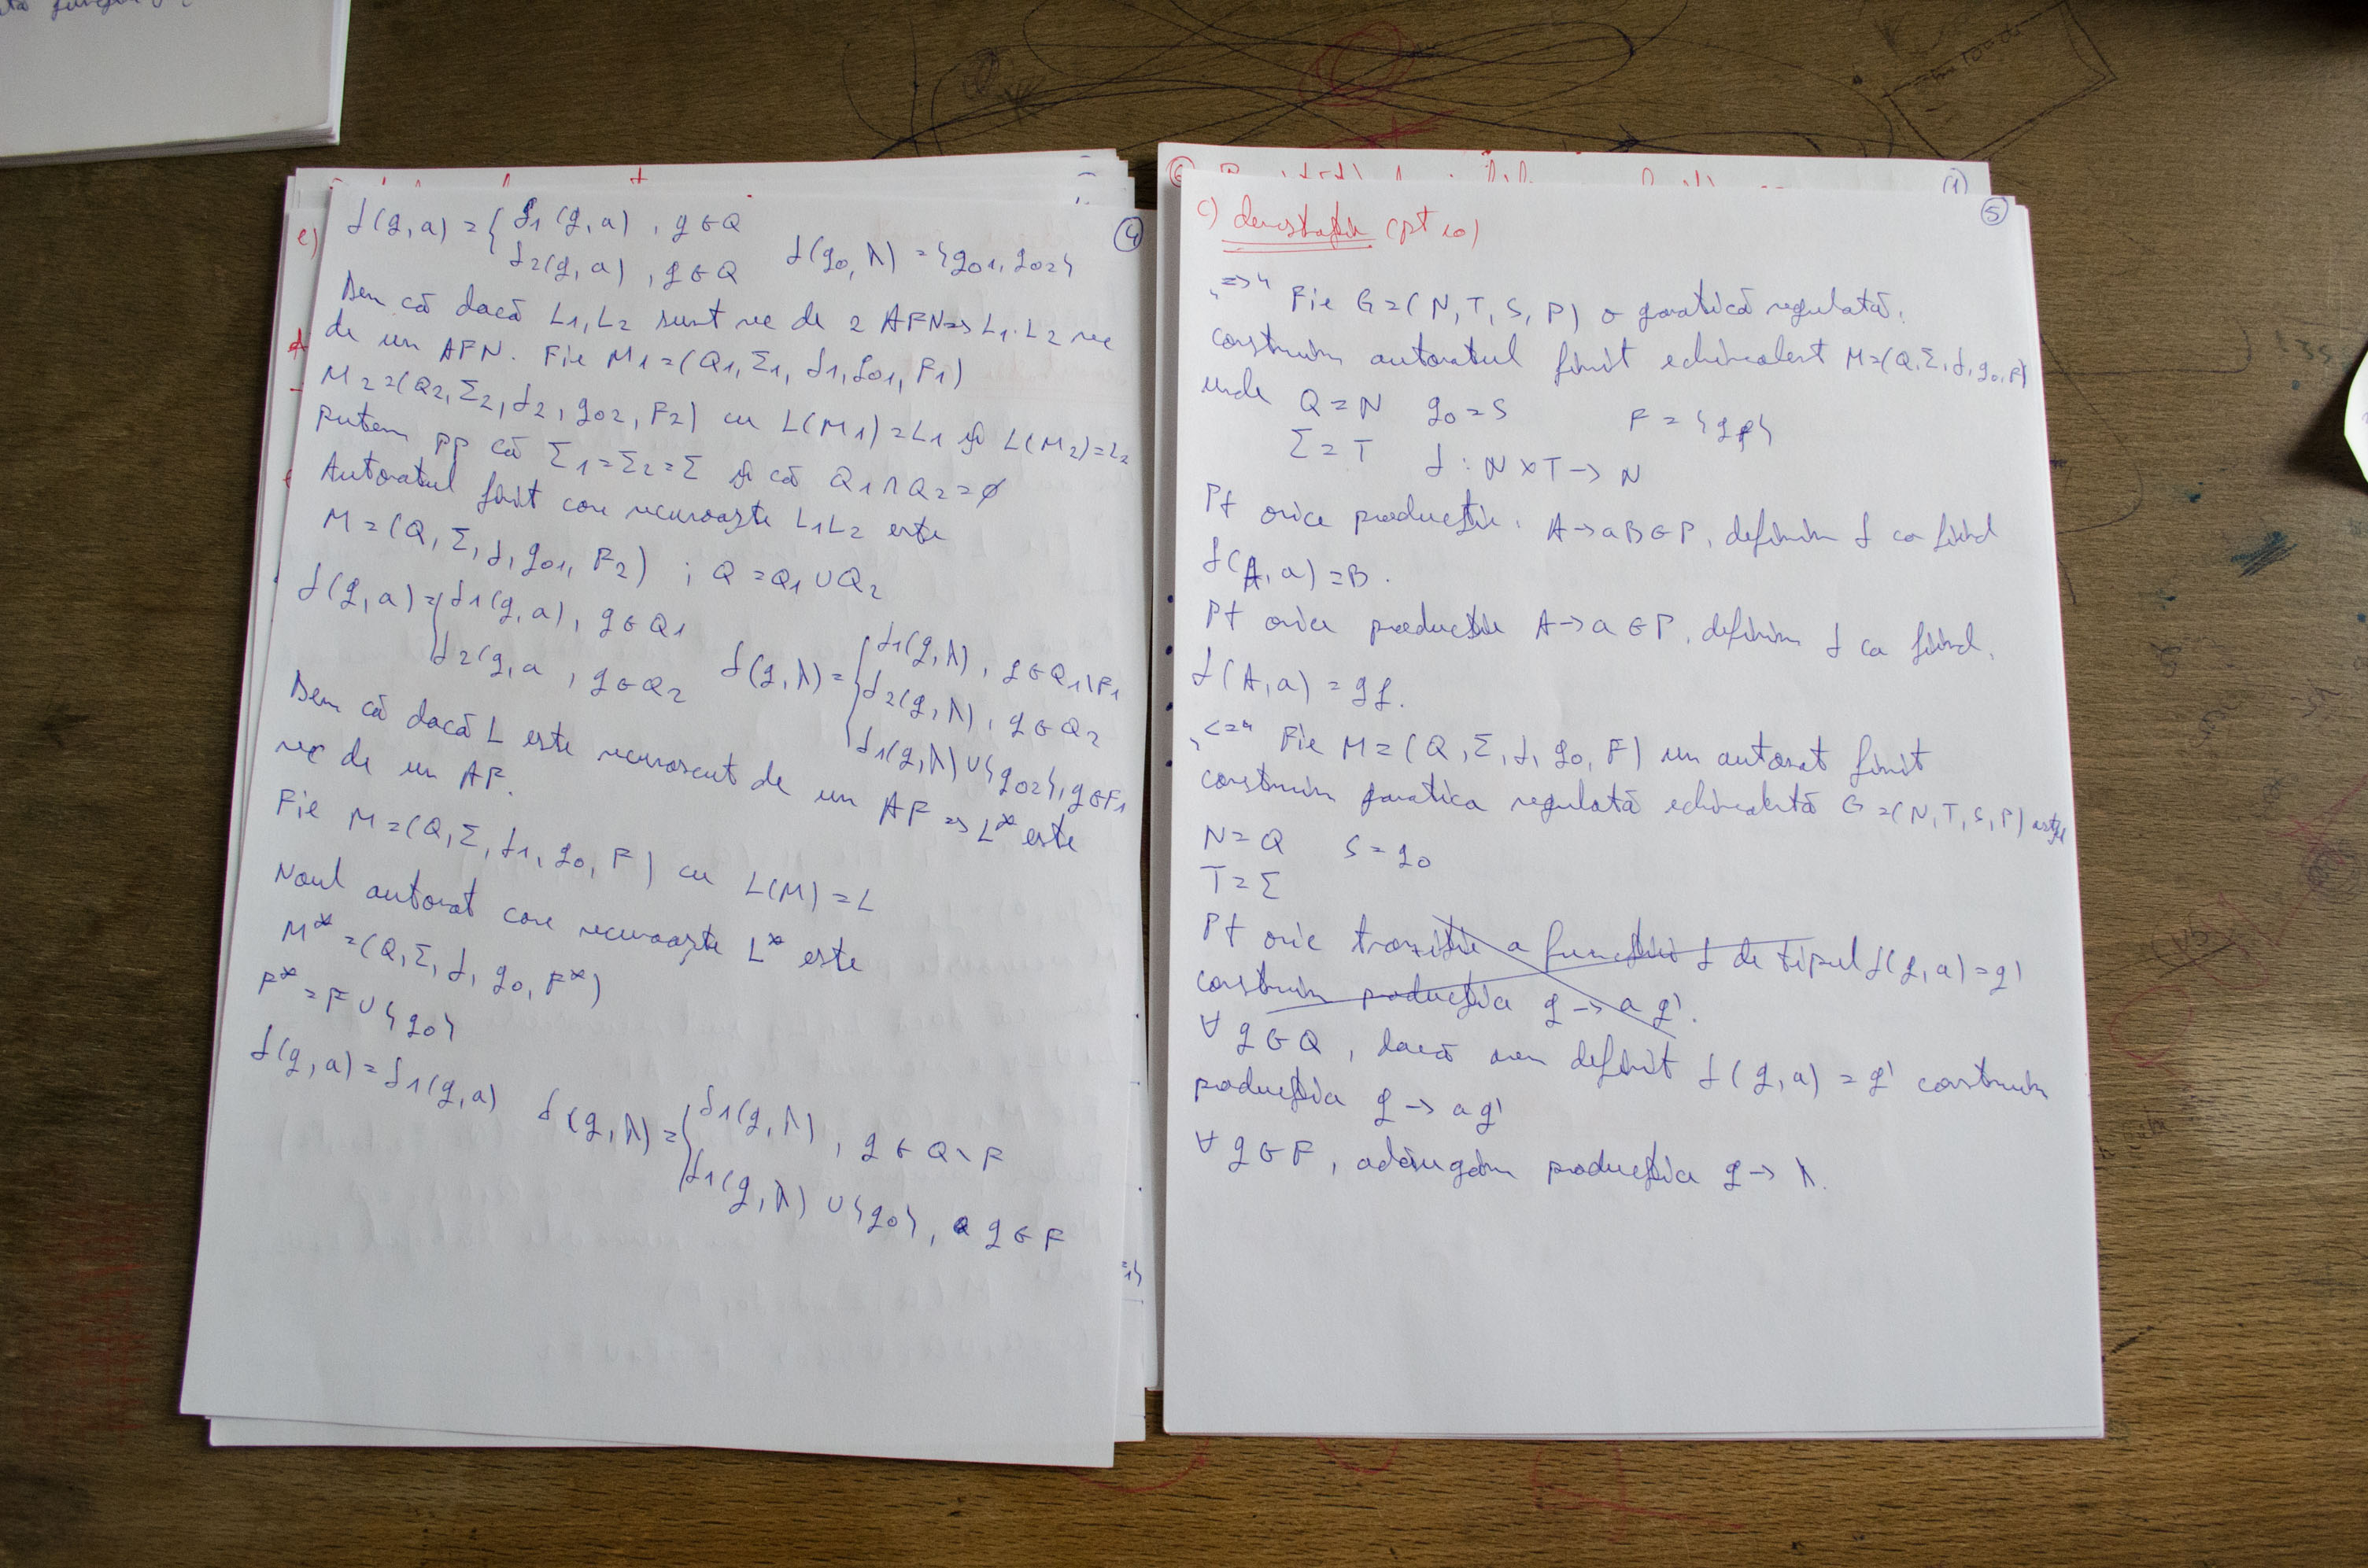 f(q,a) = { f1(q,a) , q∈Q
f2(q,a) , q∈Q f(q0,λ) = {q01,q02}
④
Dem că dacă L1,L2 sunt rec de 2 AFN=> L1·L2 rec
de un AFN. Fie M1=(Q1,Σ1,f1,q01,F1)
M2=(Q2,Σ2,f2,q02,F2) cu L(M1)=L1 și L(M2)=L2
putem pp că Σ1=Σ2=Σ și că Q1∩Q2=∅
Automatul finit care recunoaște L1L2 este
M=(Q,Σ,f,q01,F2) ; Q=Q1∪Q2
f(q,a)={ f1(q,a), q∈Q1
f2(q,a , q∈Q2
f(q,λ)={ f1(q,λ), q∈Q1\F1
f2(q,λ), q∈Q2
f1(q,λ)∪{q02}, q∈F1
Dem că dacă L este recunoscut de un AF => L* este
rec de un AF.
Fie M=(Q,Σ,f1,q0,F) cu L(M)=L
Noul automat care recunoaște L* este
M*=(Q,Σ,f,q0,F*)
F*=F∪{q0}
f(q,a)=f1(q,a) f(q,λ)={ f1(q,λ) , q∈Q\F
f1(q,λ)∪{q0}, q∈F
e)
c) demstație (pt 10)
⑤
(1)
"=>" Fie G=(N,T,S,P) o gramatică regulată.
construim automatul finit echivalent M=(Q,Σ,f,q0,F)
unde Q=N q0=S F={qf}
Σ=T f:N×T→N
Pt orice producție. A→aB∈P, definim f ca fiind
f(A,a)=B.
Pt orice producție A→a∈P, definim f ca fiind.
f(A,a)=qf.
"<=" Fie M=(Q,Σ,f,q0,F) un automat finit
construim gramatica regulată echivalentă G=(N,T,S,P) astfel
N=Q S=q0
T=Σ
Pt oric tranziție a funcției f de tipul f(q,a)=q'
construim producția q→aq'.
∀q∈Q, dacă am definit f(q,a)=q' construim
producția q→aq'
∀q∈F, adăugăm producția q→λ.